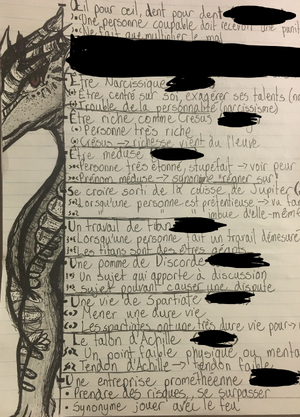 Œil pour œil, dent pour dent
Une personne coupable doit recevoir une
que multiplier le mal
Être Narcissique
Être centré sur soi, exagérer ses talents
Trouble de la personnalité (narcissisme)
Être riche comme Crésus
Personne très riche
Crésus → richesse vient du fleuve
Être méduse
Personne très étonné, stupéfait → voir peur
Prénom méduse → synonyme "régner sur"
Se croire sorti de la cuisse de Jupiter
Lorsqu'une personne est prétentieuse →
imbue d'elle-même
Un travail de titan
Lorsqu'une personne fait un travail démesuré
Les titans sont des êtres géants
Une pomme de Discorde
Un sujet qui apporte à discussion
sujet pouvant causer une dispute
Une vie de Spartiate
Mener une dure vie
Les spartiates ont une très dure vie pour →
Le talon d'Achille
Un point faible physique ou
Tendon d'Achille → tendon faible
Une entreprise prométhéenne
Prendre des risques, se surpasser
Synonyme jouer avec le feu